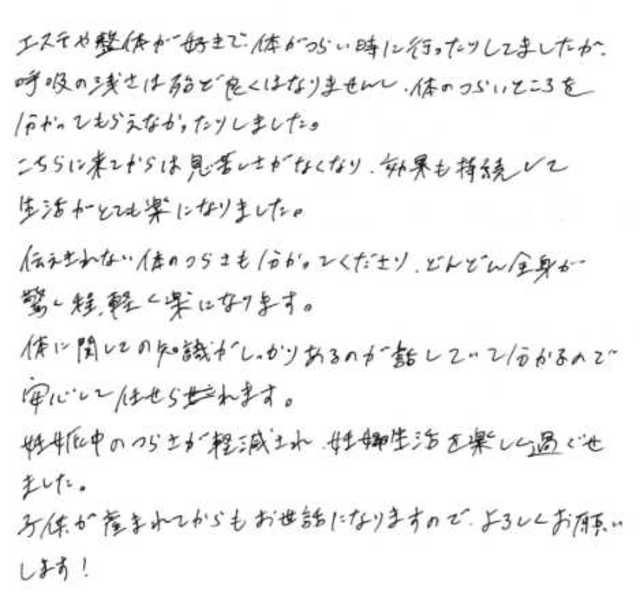 エステや整体が好きで、体がつらい時に行ったりしてましたが、
呼吸の浅さは殆ど良くはなりませんし、体のつらいところを
分かってもらえなかったりしました。
こちらに来てからは息苦しさがなくなり、効果も持続して
生活がとても楽になりました。
伝えきれない体のつらさも分かってくださり、どんどん全身が
驚く程、軽く楽になります。
体に関しての知識がしっかりあるのが話していて分かるので
安心して任せられます。
妊娠中のつらさが軽減され、妊婦生活を楽しく過ごせ
ました。
子供が産まれてからもお世話になりますので、よろしくお願い
します!